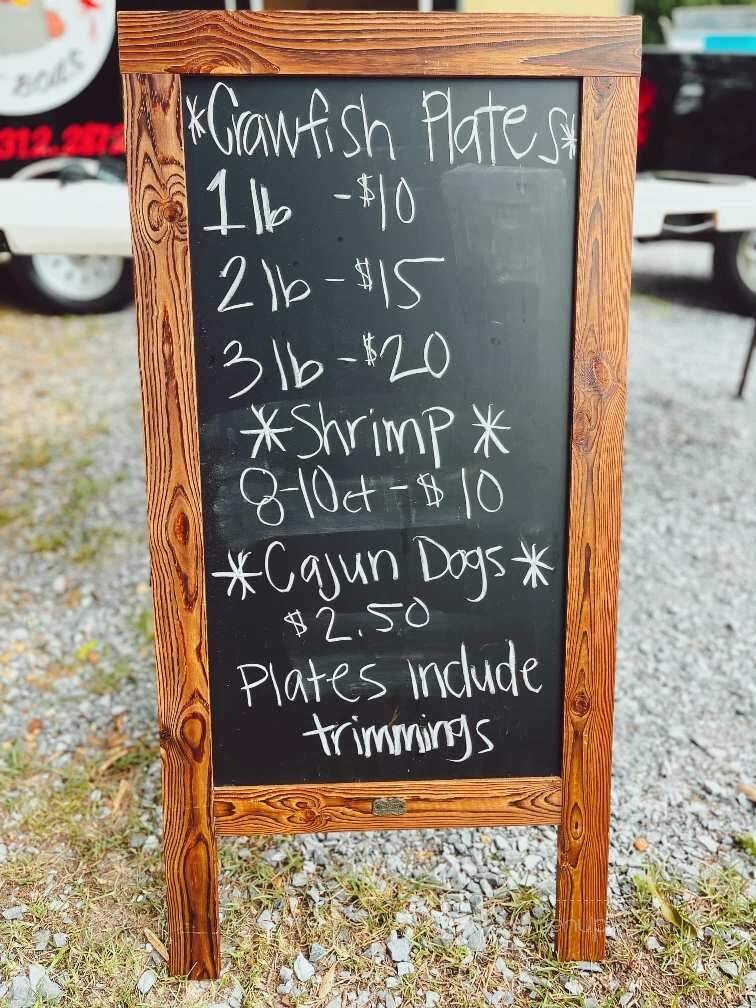 BOILS
312.2872
*Crawfish Plates*
1 lb - $10
2 lb - $15
3 lb - $20
*Shrimp*
8-10ct - $10
*Cajun Dogs*
$2.50
Plates include
trimmings